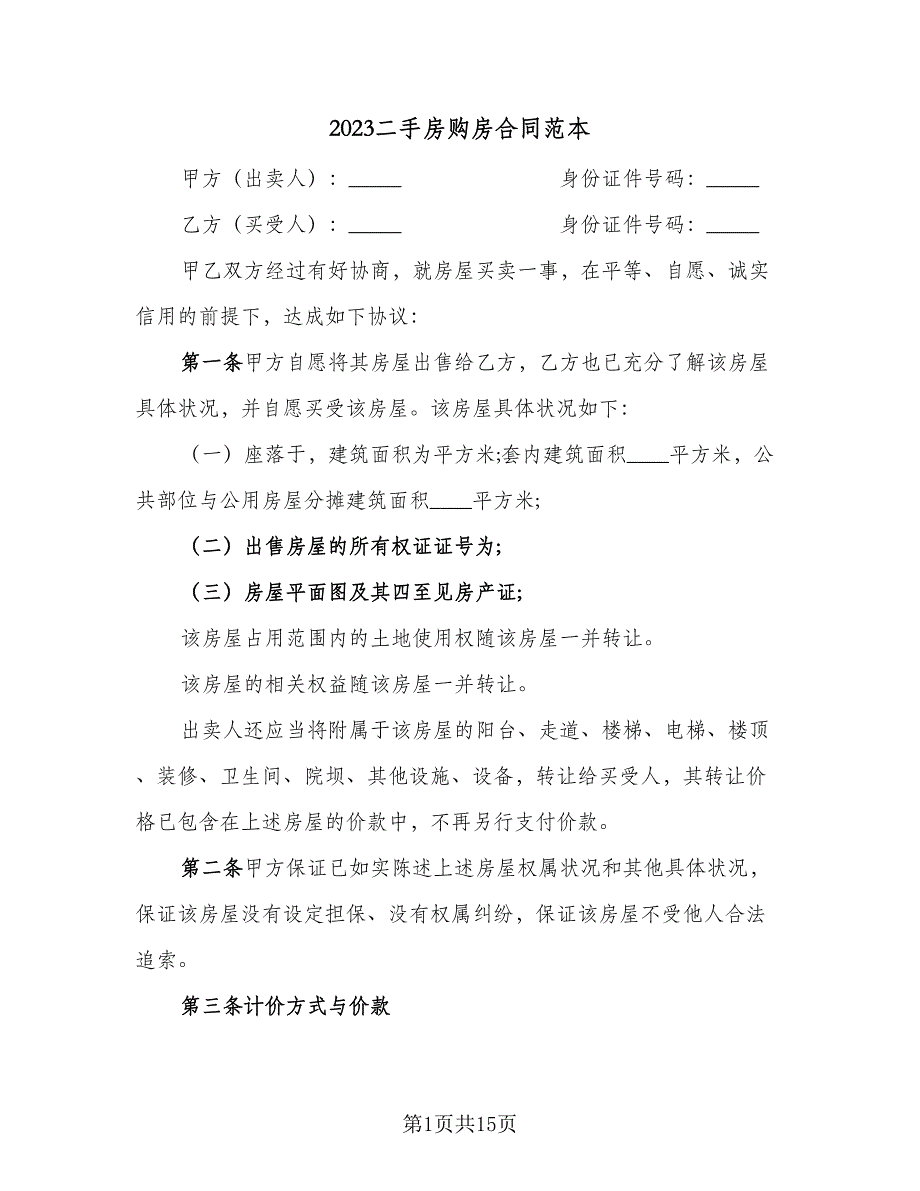 2023二手房购房合同范本
甲方（出卖人）：_____ 身份证件号码：_____
乙方（买受人）：_____ 身份证件号码：_____
甲乙双方经过有好协商，就房屋买卖一事，在平等、自愿、诚实
信用的前提下，达成如下协议：
第一条甲方自愿将其房屋出售给乙方，乙方也已充分了解该房屋
具体状况，并自愿买受该房屋。该房屋具体状况如下：
（一）座落于，建筑面积为平方米;套内建筑面积____平方米，公
共部位与公用房屋分摊建筑面积____平方米;
（二）出售房屋的所有权证证号为;
（三）房屋平面图及其四至见房产证;
该房屋占用范围内的土地使用权随该房屋一并转让。
该房屋的相关权益随该房屋一并转让。
出卖人还应当将附属于该房屋的阳台、走道、楼梯、电梯、楼顶
、装修、卫生间、院坝、其他设施、设备，转让给买受人，其转让价
格已包含在上述房屋的价款中，不再另行支付价款。
第二条甲方保证已如实陈述上述房屋权属状况和其他具体状况，
保证该房屋没有设定担保、没有权属纠纷，保证该房屋不受他人合法
追索。
第三条计价方式与价款
第1页共15页